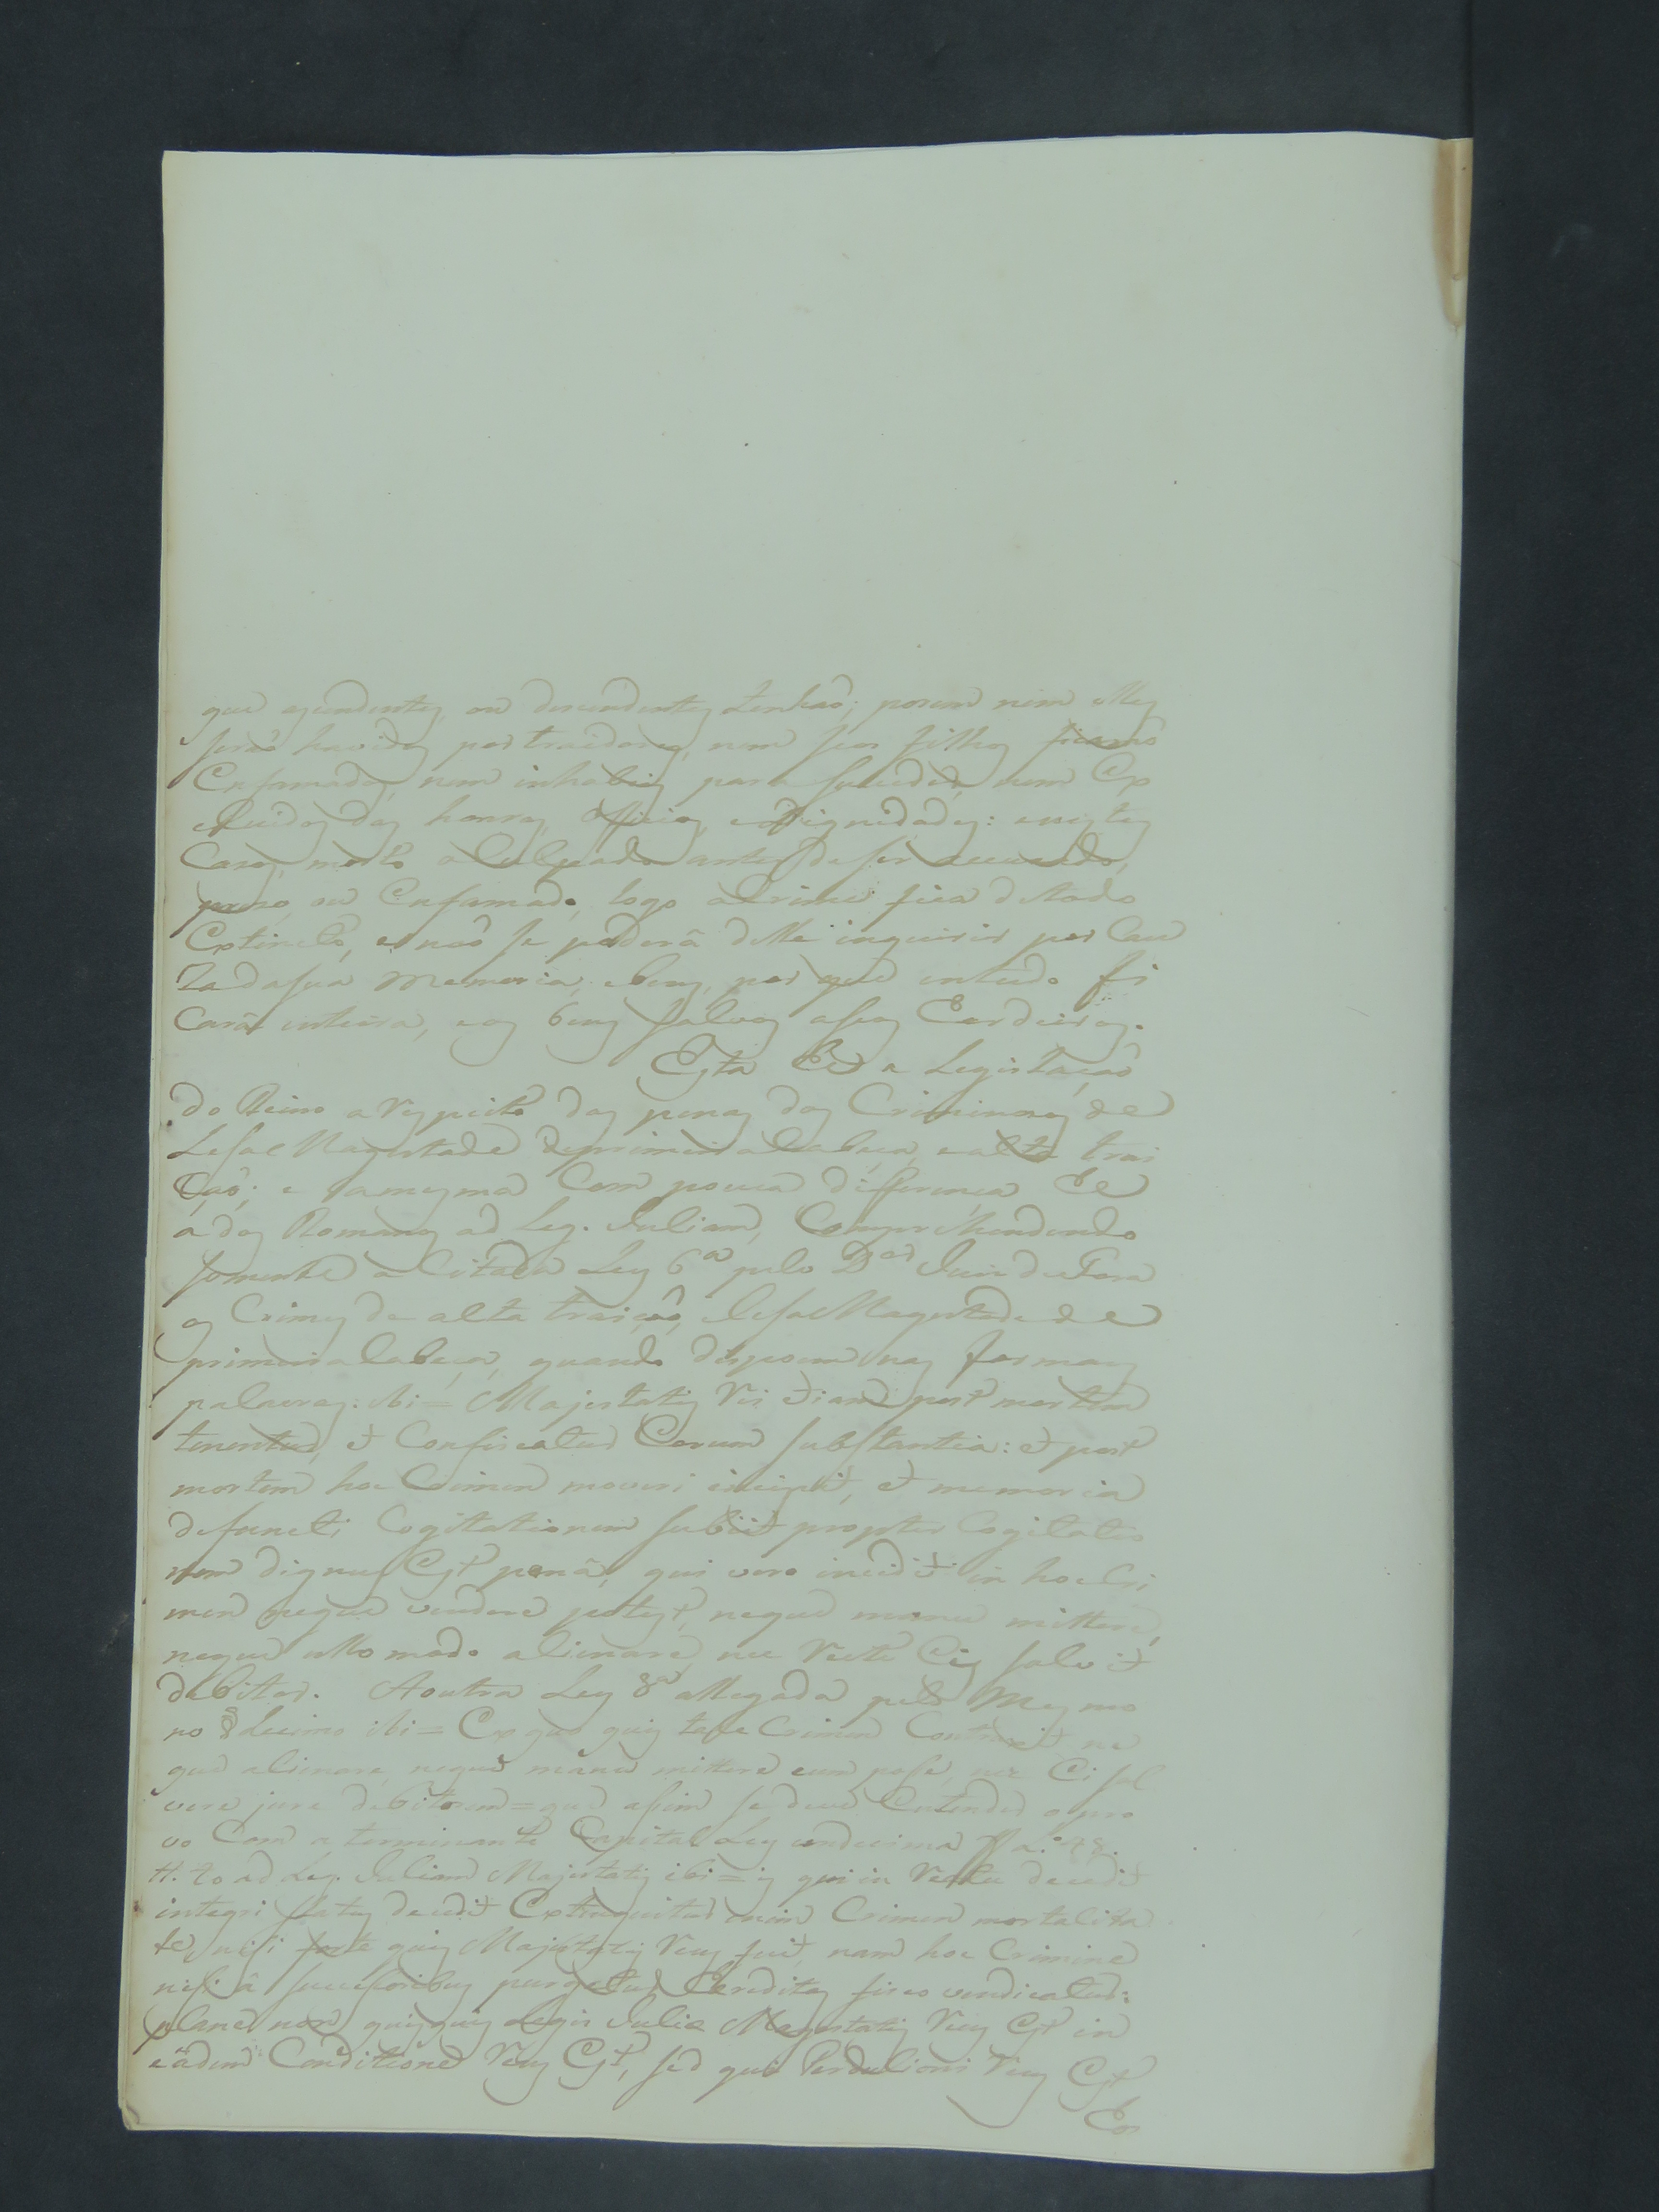 que ascendentes, ou descendentes tenhaõ; porem nem elles
seraõ havidos por traidores, nem seos filhos ficaraõ
Enfamados, nem inhabeis para succeder, nem Ex
cluidos das honras, Officios, e Dignidades: e nestes
Cazos, morto o Culpado antes de ser accuzado,
prezo, ou Enfamado, logo o Crime fica de todo
Extincto, e naõ se poderâ delle inquirir por Cau
za da sua memoria, e bens, por que em tudo fi
carâ inteira, e os bens salvos a seos Erdeiros.
Esta Hé a Legislaçaõ
do Reino a respeito das penas dos Criminozos de
Lesa e Magestade de primeira Cabeça, e alta trai
çaõ; e a mesma Com pouca differença he
a dos Romanos ad Leg. Juliam, Comprehendendo
somente a Citada Ley 6ª pelo Dor Juis de Fora
os Crimes de alta traiçaõ, e Lesa Magestade de
primeira Cabeça, quando dispoem nas formaes
palavras: ibi = Majestatis rei etiam post mortem
tenentur, et Confiscatur Eorum substantia: et post
mortem hoc Crimen moveri incipit, et memoria
defuncti Cogitationem subiit propter Cogitatio
nem dignus Est penâ, qui vero incidit in hoc Cri
men neque vendere potest, neque manu mittere,
neque ullo modo alienare, nec recte Eis solvit
debitor. A outra Ley 8ª allegada pelo Mesmo
no § decimo ibi = Ex quo quis tale Crimen Contraxit ne
que alienare, neque manu mittere eum posse, nec Ei sol
vere jure debitorem = que assim se deve Entender o pro
vo Com a terminante Capital Ley undecima ff a.º 48.
tt. 4o ad Leg. Juliam Majestatis ibi = is qui in reatu decedit
integri status decedit Extinguitur enim Crimen mortalita
te, nisi forte quis Majestatis reus fuit, nam hoc Crimine
nisi â successoribus purgetur hereditas fisco vendicatur:
plane non quisquis Legis Julie Magestatis reus Est in
eâdem Conditione reus Est, sed qui Perdulionis reus Est